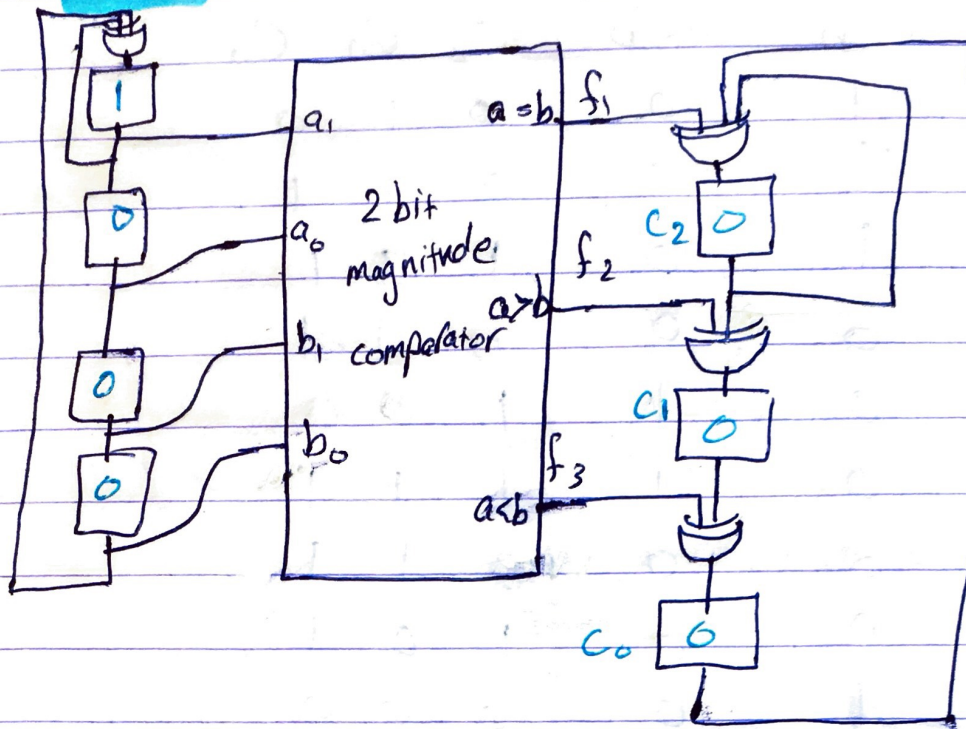 1
0
0
0
a₁
a₀
b₁
b₀
2 bit
magnitude
comparator
a=b
a>b
a<b
f₁
f₂
f₃
C₂
0
C₁
0
C₀
0